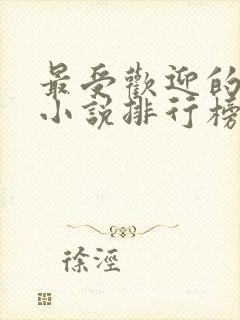 最受歡迎的
小說排行榜
徐涇